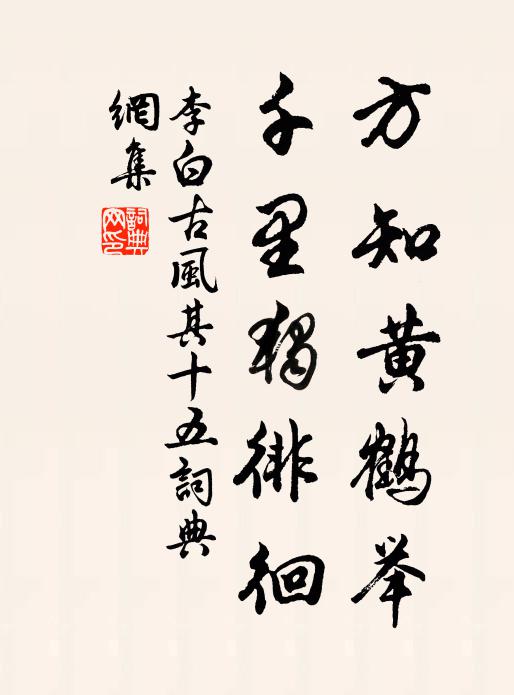 方知黄鶴举
千里獨徘徊
李白古風其十五詞典
網集
詞典
网印